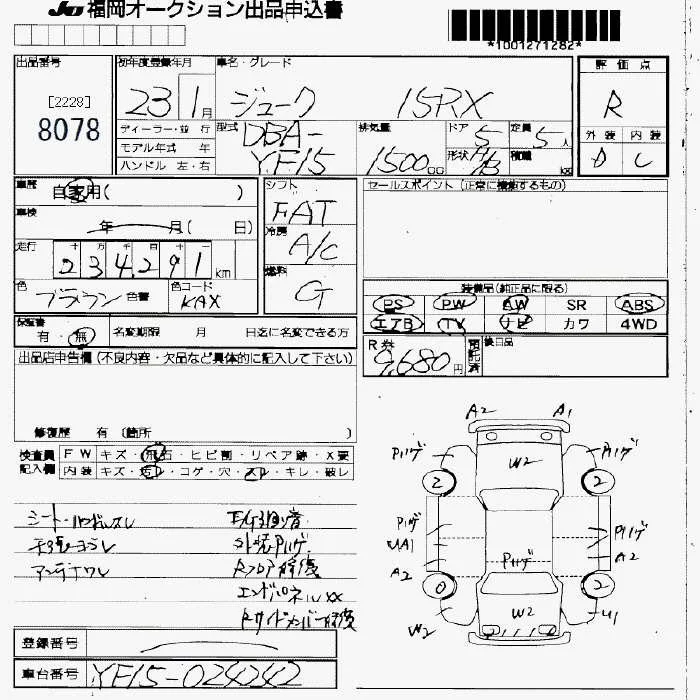 JU 福岡オークション出品申込書
*1001271282*
出品番号 初年度登録年月 車名・グレード 評価点
[2228] 8078
23 1月 ジューク 15RX R
ディーラー・並行 型式 排気量 ドア 定員 外装 内装
モデル年式 年 DBA-YF15 1500cc 5 5人 D C
ハンドル 左・右 形状 H/B 積載 kg
車歴 自家用( ) シフト FAT セールスポイント (正常に機能するもの)
車検 年 月( 日) 冷房 A/C
走行 十 万 千 百 十
234,291 km 燃料 G
色 ブラウン 色替 色コード KAX
装備品(純正品に限る)
PS PW AW SR ABS
エアB TV ナビ カワ 4WD
保証書 有・無 名変期限 月 日迄に名変できる方
R券 9,680円 預託済 後日品
出品店申告欄 (不良内容・欠品など具体的に記入して下さい)
修復歴 有 〔箇所 〕
検査員記入欄 FW キズ・飛石・ヒビ割・リペア跡・X要
内装 キズ・汚レ・コゲ・穴・スレ・キレ・破レ
A2 A1
Pハゲ W2 Pハゲ
2 2
Pハゲ Pハゲ
UA1 Pハゲ A2
A2
0 2
W2 W2 U1
シート・ハンドルスレ
天張ヨゴレ
アンテナワレ
外装Pハゲ
Rフロア修復
エンドパネルXX
Rサイドメンバー修復
登録番号
車台番号 YF15-024242